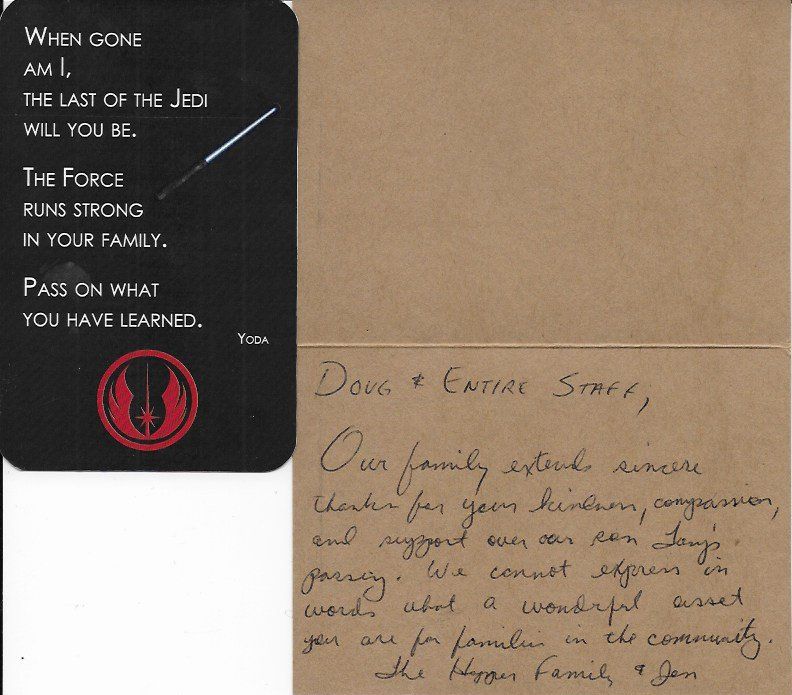 WHEN GONE
AM I,
THE LAST OF THE JEDI
WILL YOU BE.
THE FORCE
RUNS STRONG
IN YOUR FAMILY.
PASS ON WHAT
YOU HAVE LEARNED.
YODA
DOUG & ENTIRE STAFF,
Our family extends sincere
thanks for your kindness, compassion,
and support over our son
passing. We cannot express in
words what a wonderful asset
you are for families in the community.
The Family & Jen